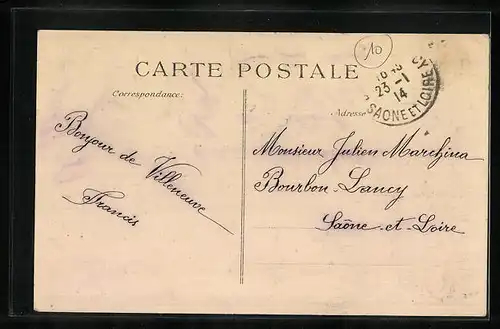 10
CARTE POSTALE
Correspondance:
Adresse
CY
23-1
14
SAONE ET LOIRE
Bonjour de Villeneuve
Francis
Monsieur Julien Marchina
Bourbon-Lancy
Saône-et-Loire